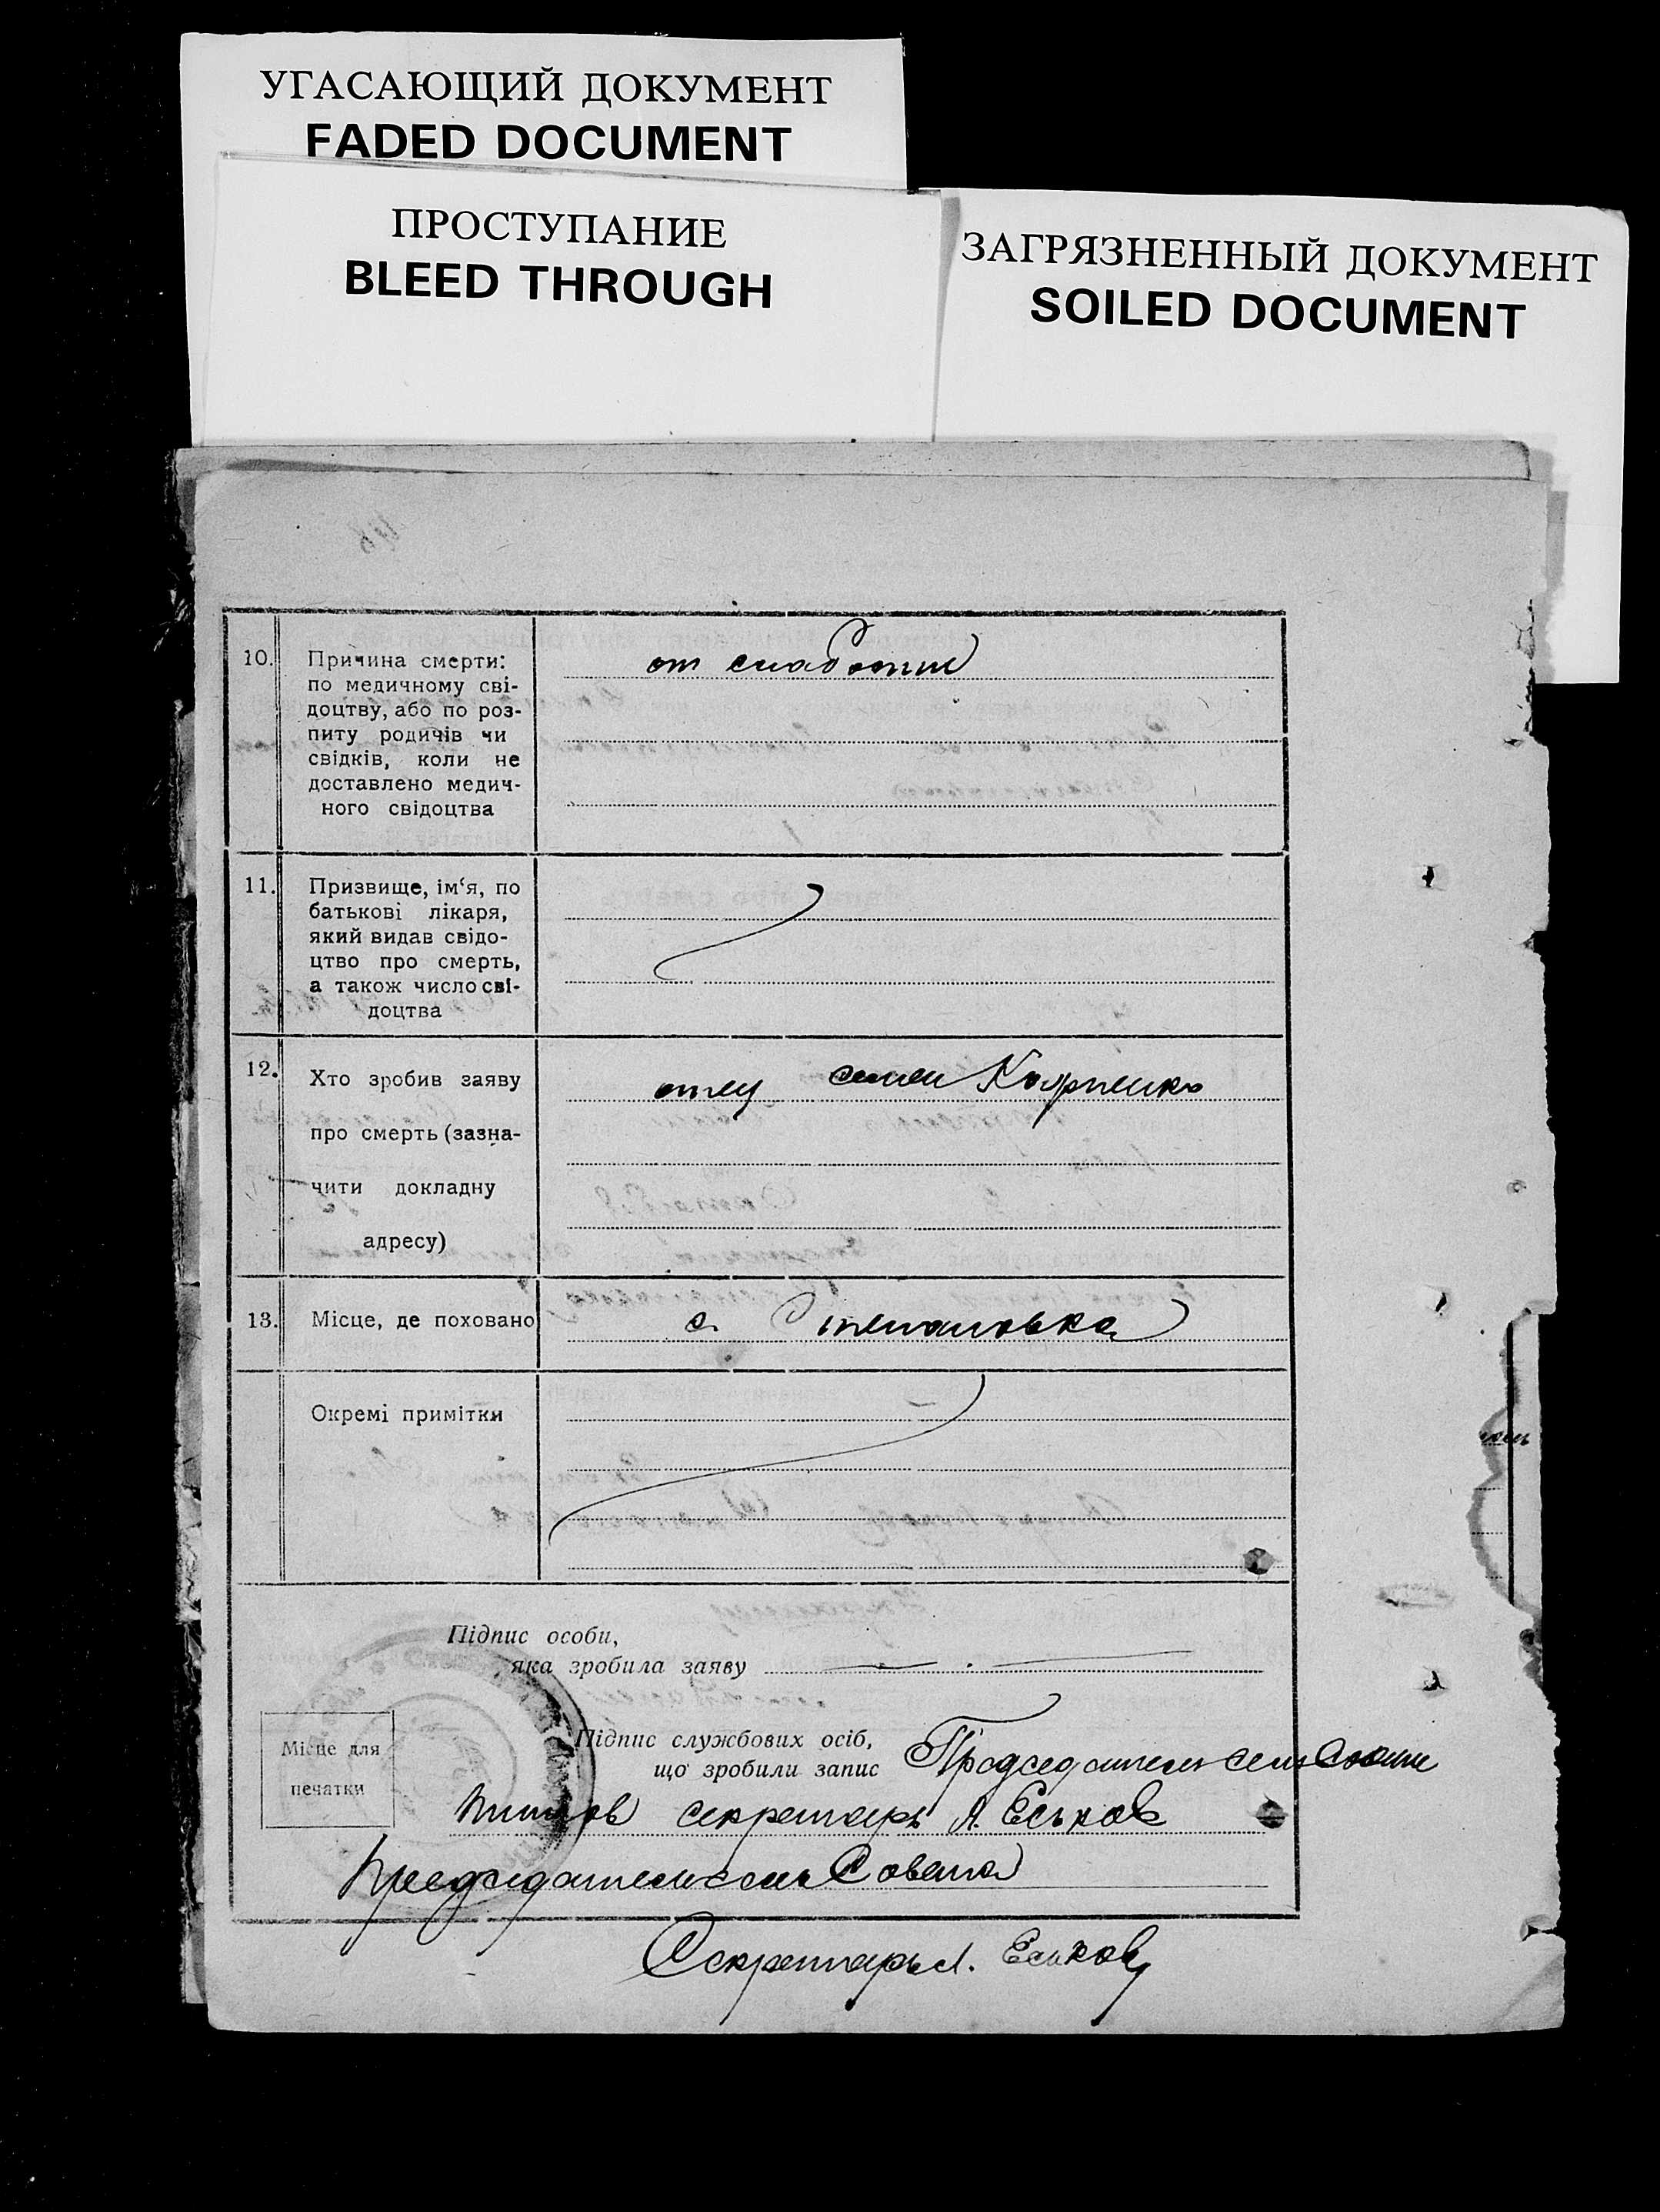 УГАСАЮЩИЙ ДОКУМЕНТ
FADED DOCUMENT
ПРОСТУПАНИЕ
BLEED THROUGH
ЗАГРЯЗНЕННЫЙ ДОКУМЕНТ
SOILED DOCUMENT
10.
Причина смерти:
по медичному сві-
доцтву, або по роз-
питу родичів чи
свідків, коли не
доставлено медич-
ного свідоцтва
от слабости
11.
Призвище, ім‘я, по
батькові лікаря,
який видав свідо-
цтво про смерть,
а також число сві-
доцтва
12.
Хто зробив заяву
про смерть (зазна-
чити докладну
адресу)
отец семен Карпенко
13.
Місце, де поховано
с. Степановка
Окремі примітки
Підпис особи,
яка зробила заяву
Місце для
печатки
Підпис службових осіб,
що зробили запис
Председатель сель
секретарь Я. Еськов
Председатель сель Совета
Секретарь Еськов